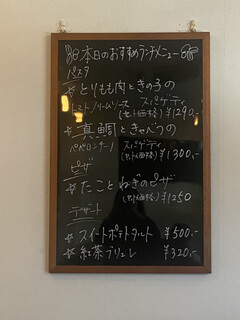 本日のおすすめランチメニュー
パスタ
☆とりもも肉ときのこの
トマトクリームソース スパゲティ
(セット価格) ¥1290.-
☆真鯛ときゃべつの
ペペロンチーノ スパゲティ
(セット価格) ¥1300.-
ピザ
☆たことねぎのピザ
(セット価格) ¥1250
デザート
☆スイートポテトタルト ¥500.-
☆紅茶ブリュレ ¥320.-